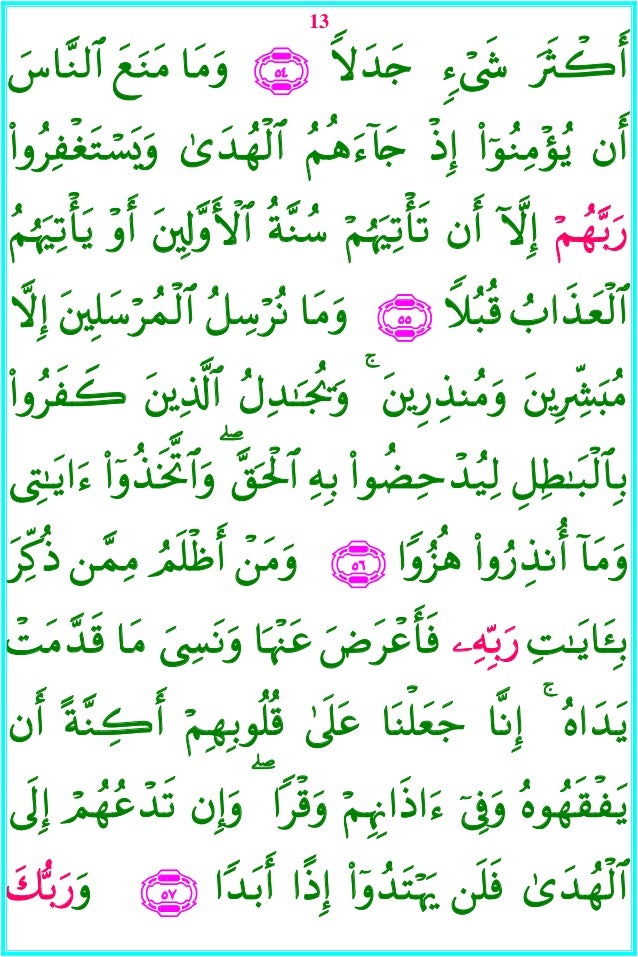 13
أَكْثَرَ شَىْءٍۢ جَدَلًۭا ٥٤ وَمَا مَنَعَ ٱلنَّاسَ
أَن يُؤْمِنُوٓا۟ إِذْ جَآءَهُمُ ٱلْهُدَىٰ وَيَسْتَغْفِرُوا۟
رَبَّهُمْ إِلَّآ أَن تَأْتِيَهُمْ سُنَّةُ ٱلْأَوَّلِينَ أَوْ يَأْتِيَهُمُ
ٱلْعَذَابُ قُبُلًۭا ٥٥ وَمَا نُرْسِلُ ٱلْمُرْسَلِينَ إِلَّا
مُبَشِّرِينَ وَمُنذِرِينَ ۚ وَيُجَـٰدِلُ ٱلَّذِينَ كَفَرُوا۟
بِٱلْبَـٰطِلِ لِيُدْحِضُوا۟ بِهِ ٱلْحَقَّ ۖ وَٱتَّخَذُوٓا۟ ءَايَـٰتِى
وَمَآ أُنذِرُوا۟ هُزُوًۭا ٥٦ وَمَنْ أَظْلَمُ مِمَّن ذُكِّرَ
بِـَٔايَـٰتِ رَبِّهِۦ فَأَعْرَضَ عَنْهَا وَنَسِىَ مَا قَدَّمَتْ
يَدَاهُ ۚ إِنَّا جَعَلْنَا عَلَىٰ قُلُوبِهِمْ أَكِنَّةً أَن
يَفْقَهُوهُ وَفِىٓ ءَاذَانِهِمْ وَقْرًۭا ۖ وَإِن تَدْعُهُمْ إِلَى
ٱلْهُدَىٰ فَلَن يَهْتَدُوٓا۟ إِذًا أَبَدًۭا ٥٧ وَرَبُّكَ